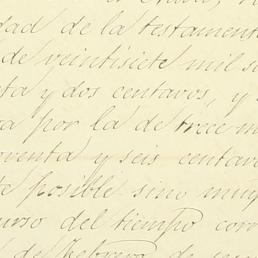 dad de la testament
de veintisiete mil s
ta y dos centavos, y s
a por la de trece m
oventa y seis centavo
te posible sino muy
urso del tiempo corr
de Febrero de